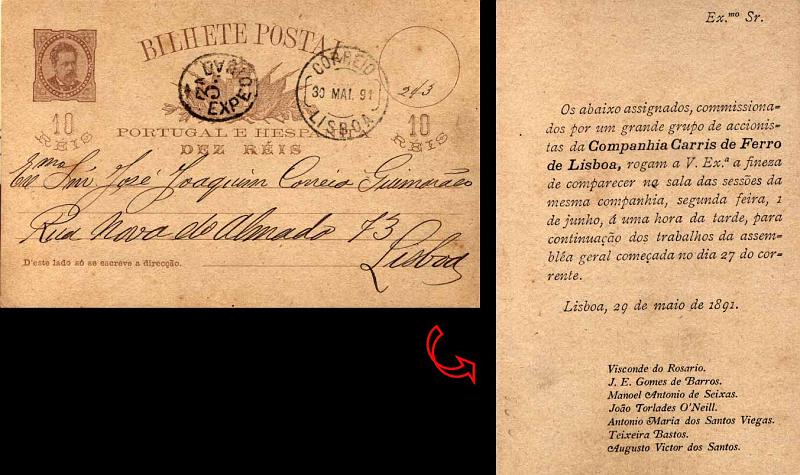 BILHETE POSTAL
3ª
EXPED
CORREIO
30 MAI. 91
LISBOA
243
10
RÉIS
10
RÉIS
PORTUGAL E HESPA
DEZ RÉIS
Exmo Snr José Joaquim Correia Guimarães
Rua Nova do Almada 73
Lisboa
D'este lado só se escreve a direcção.
Ex.mo Sr.
Os abaixo assignados, commissiona-
dos por um grande grupo de accionis-
tas da Companhia Carris de Ferro
de Lisboa, rogam a V. Ex.ª a fineza
de comparecer na sala das sessões da
mesma companhia, segunda feira, 1
de junho, á uma hora da tarde, para
continuação dos trabalhos da assem-
bléa geral começada no dia 27 do cor-
rente.
Lisboa, 29 de maio de 1891.
Visconde do Rosario.
J. E. Gomes de Barros.
Manoel Antonio de Seixas.
João Torlades O'Neill.
Antonio Maria dos Santos Viegas.
Teixeira Bastos.
Augusto Victor dos Santos.